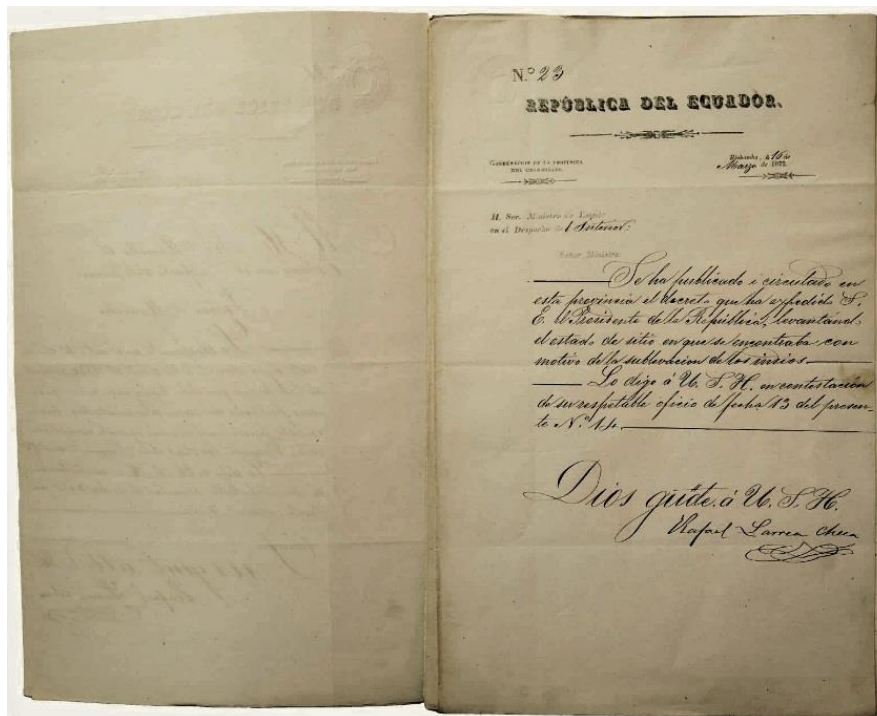 N.º 23
REPÚBLICA DEL ECUADOR.
GOBERNACION DE LA PROVINCIA
DEL CHIMBORAZO.
Riobamba, á 16 de
Marzo de 1872.
H. Sor. Ministro de Estado
en el Despacho del Interior:
Señor Ministro
Se ha publicado i circulado en
esta provincia el decreto que ha expedido S.
E. el Presidente de la República, levantand
el estado de sitio en que se encontraba con
motivo de la sublevacion de los indios.
Lo digo á U. S. H. en contestacion
de su respetable oficio de fecha 13 del presen-
te N.º 14.
Dios gũde. á U. S. H.
Rafael Larrea Checa